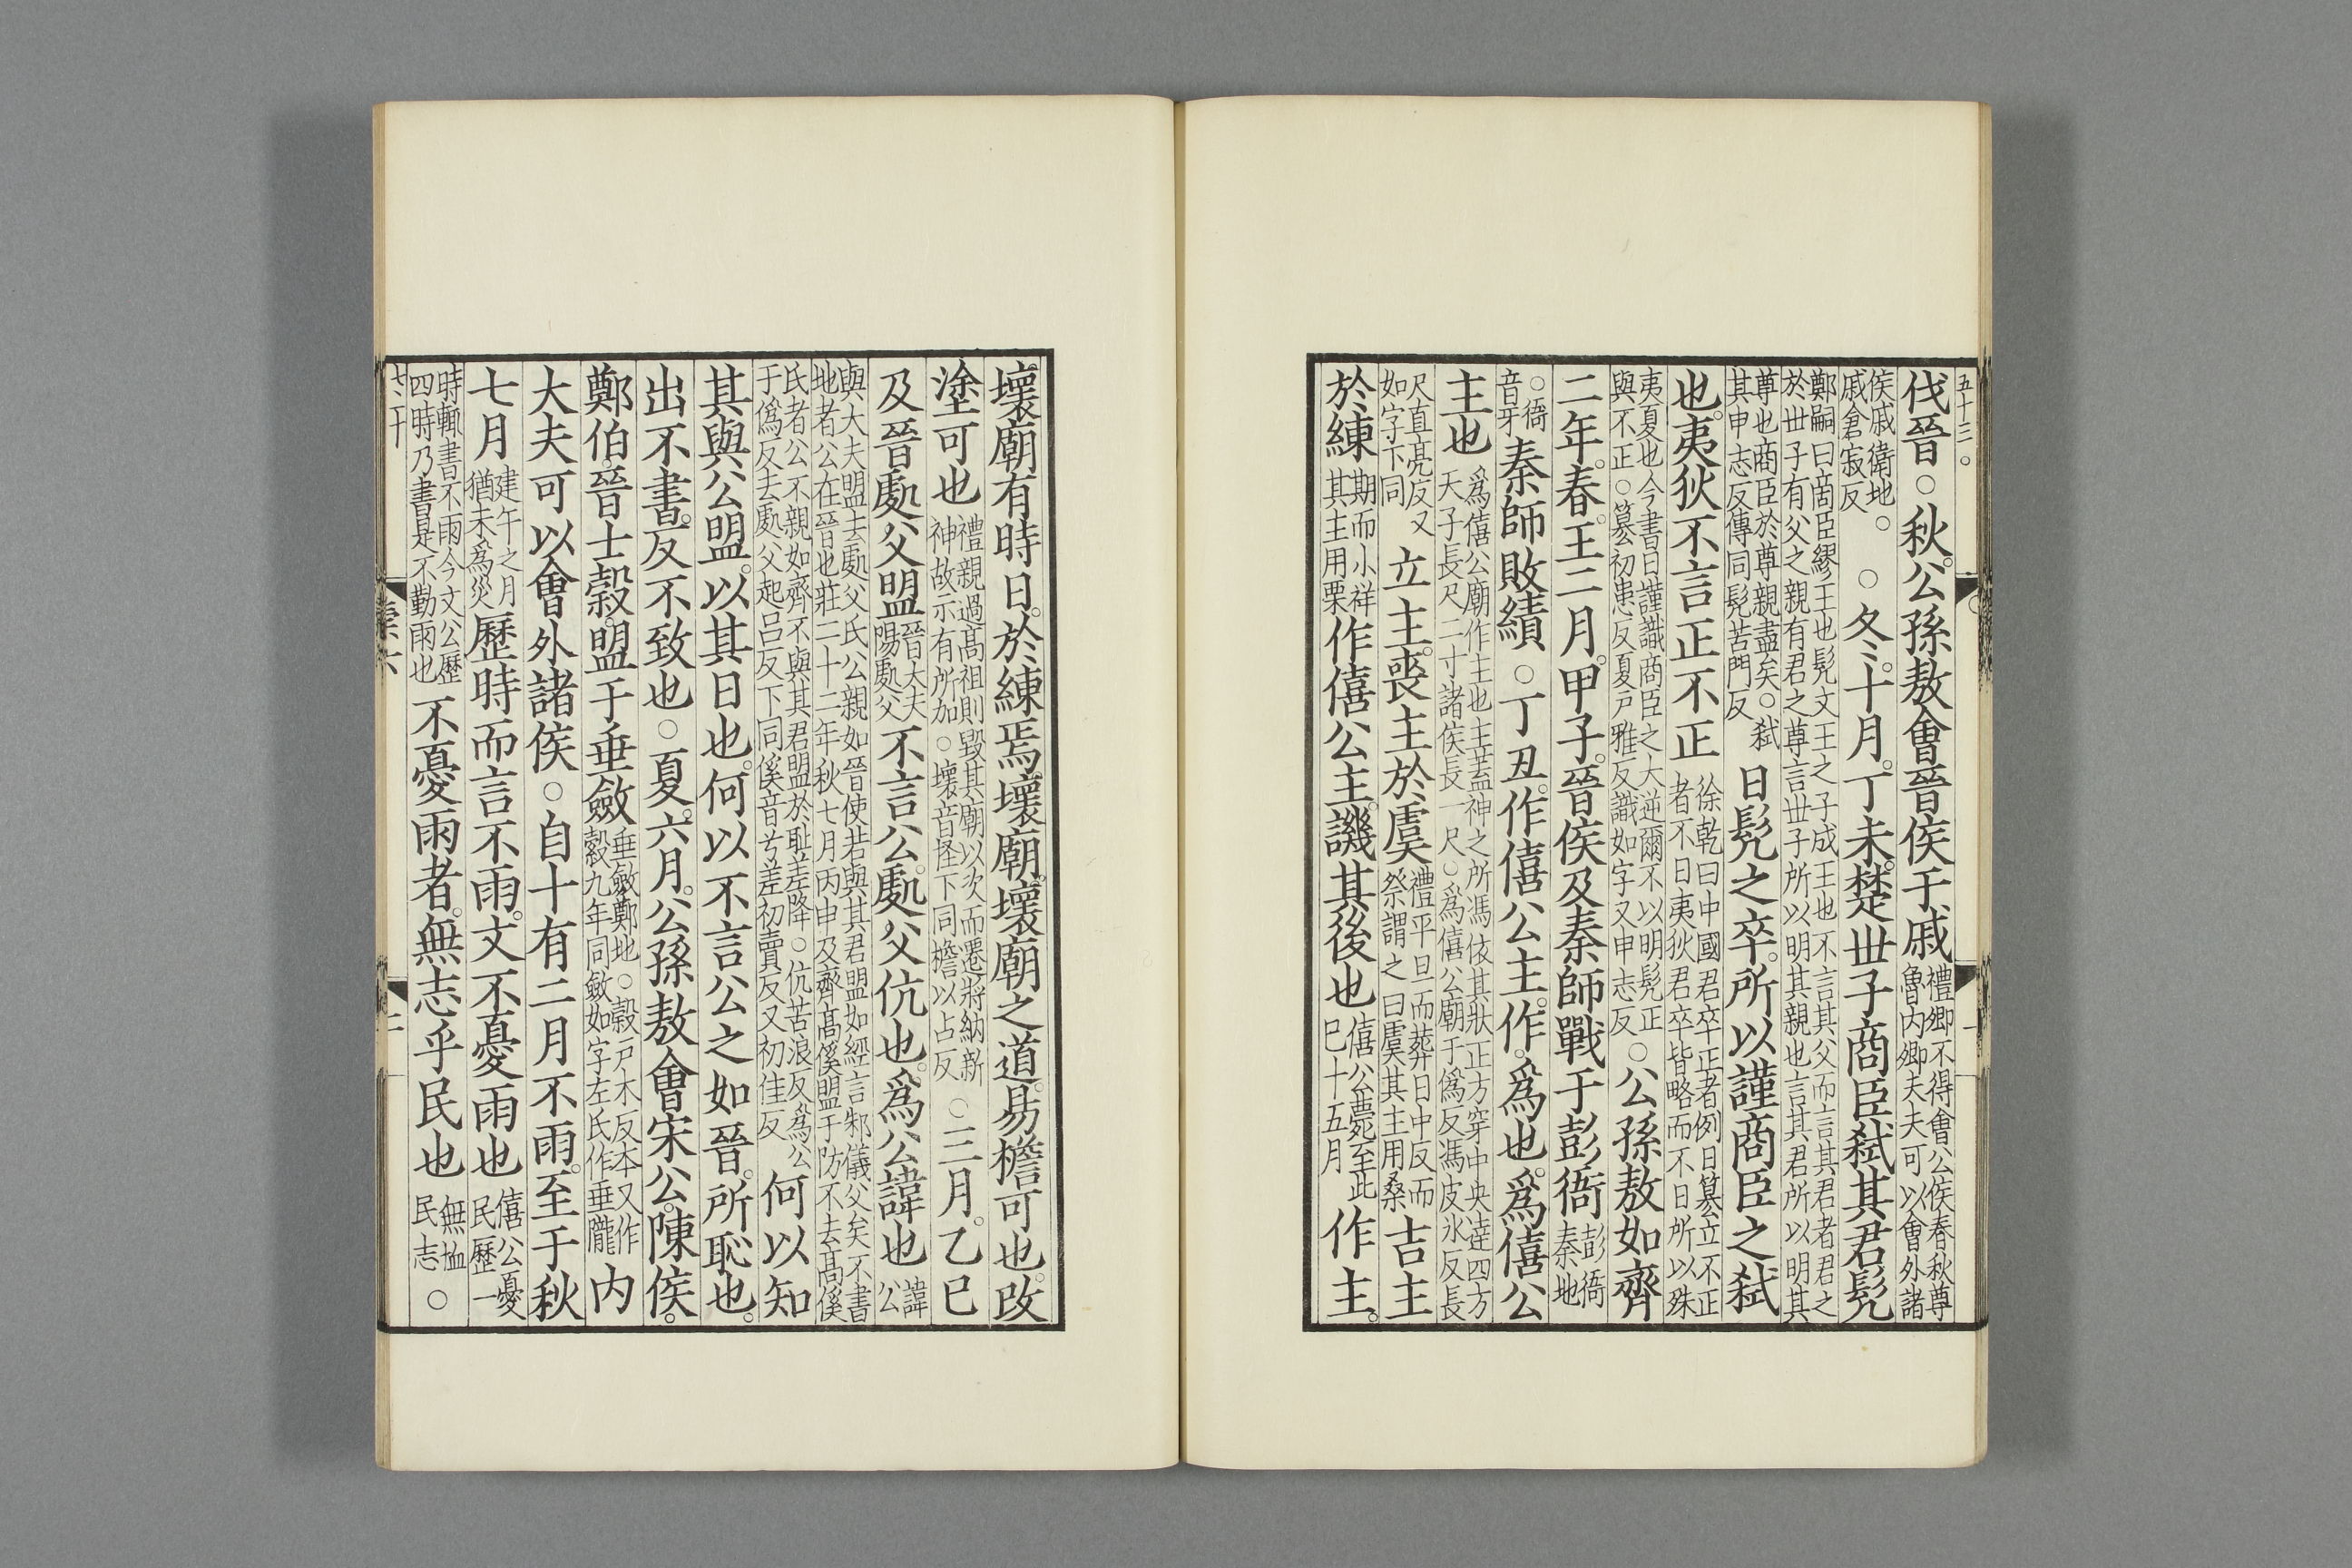 五十三。
伐晉○秋。公孫敖會晉侯于戚禮卿不得會公侯春秋尊魯內卿大夫可以會外諸
侯戚衛地○戚倉寂反○冬。十月。丁未。楚世子商臣弑其君髡
鄭嗣曰商臣繆王也髡文王之子成王也不言其父而言其君者君之於世子有父之親有君之尊言世子所以明其親也言其君所以明其
尊也商臣於尊親盡矣○弑其申志反傳同髡苦門反日髡之卒。所以謹商臣之弑
也。夷狄不言正不正徐乾曰中國君卒正者例日篡立不正者不日夷狄君卒皆略而不日所以殊
夷夏也今書日謹識商臣之大逆爾不以明髡正與不正○篡初患反夏戶雅反識如字又申志反○公孫敖如齊
二年。春。王二月。甲子。晉侯及秦師戰于彭衙彭衙秦地
○衙音牙秦師敗績○丁丑。作僖公主。作。爲也。爲僖公
主也爲僖公廟作主也主蓋神之所馮依其狀正方穿中央達四方天子長尺二寸諸侯長一尺○爲僖公廟于僞反馮皮氷反長
尺直亮反又如字下同立主。喪主於虞禮平旦而葬日中反而祭謂之曰虞其主用桑吉主
於練期而小祥其主用栗作僖公主。譏其後也僖公薨至此已十五月作主。
壞廟有時日。於練焉壞廟。壞廟之道。易檐可也。改
塗可也禮親過高祖則毀其廟以次而遷將納新神故示有所加○壞音怪下同檐以占反○三月。乙巳
及晉處父盟晉大夫陽處父不言公。處父伉也。爲公諱也諱公
與大夫盟去處父氏公親如晉使若與其君盟如經言邾儀父矣不書地者公在晉也莊二十二年秋七月丙申及齊高傒盟于防不去高傒
氏者公不親如齊不與其君盟於恥差降○伉苦浪反爲公于僞反去處父起呂反下同傒音兮差初賣反又初佳反何以知
其與公盟。以其日也。何以不言公之如晉。所恥也。
出不書。反不致也○夏。六月。公孫敖會宋公。陳侯。
鄭伯。晉士縠。盟于垂斂垂斂鄭地○縠戶木反本又作穀九年同斂如字左氏作垂隴內
大夫可以會外諸侯○自十有二月不雨。至于秋
七月建午之月猶未爲災歷時而言不雨。文不憂雨也僖公憂民歷一
時輒書不雨今文公歷四時乃書是不勤雨也不憂雨者。無志乎民也無恤民志○